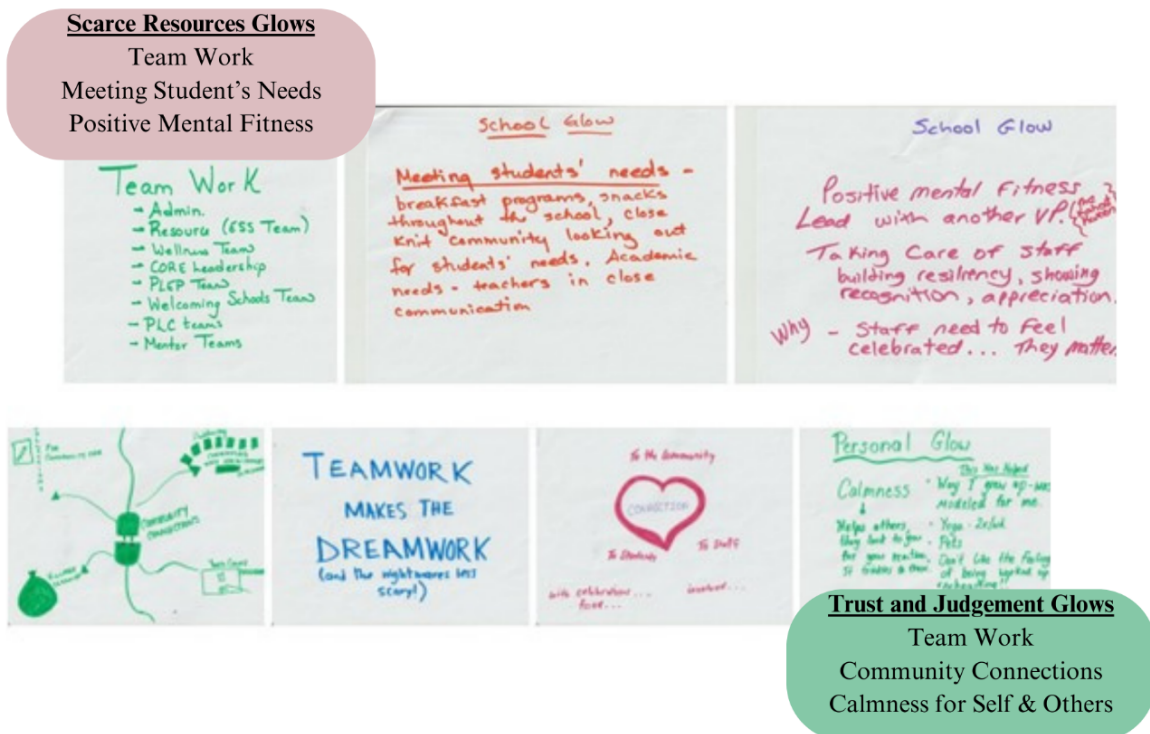 Scarce Resources Glows
Team Work
Meeting Student's Needs
Positive Mental Fitness
Team Work
- Admin.
- Resource (ESS Team)
- Wellness Team
- CORE Leadership
- PLEP Team
- Welcoming Schools Team
- PLC teams
- Mentor Teams
School Glow
Meeting students' needs -
breakfast programs, snacks
throughout the school, close
knit community looking out
for students' needs. Academic
needs - teachers in close
communication
School Glow
Positive mental Fitness
Lead with another VP.
Taking Care of staff
building resiliency, showing
recognition, appreciation.
Why - Staff need to feel
celebrated... They matter
COMMUNITY
CONNECTIONS
TEAMWORK
MAKES THE
DREAMWORK
(and the nightmares less
scary!)
To the Community
CONNECTION
To Students
To Staff
with celebrations...
involved...
Personal Glow
This Has Helped
Calmness
Helps others,
they look to you
for your reaction.
It trickles to them.
• Way I grew up - was
modeled for me.
• Yoga - 2x/wk
• Pets
• Don't like the feeling
of being worked up
Trust and Judgement Glows
Team Work
Community Connections
Calmness for Self & Others